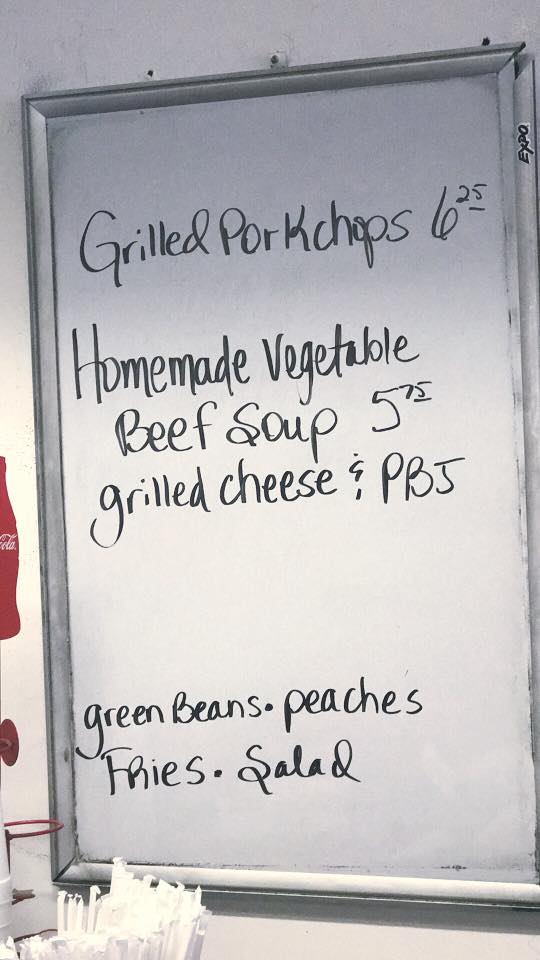 EXPO
Grilled Porkchops 6 25
Homemade Vegetable
Beef Soup 5 75
grilled cheese & PBJ
Cola
green Beans. peaches
Fries. Salad